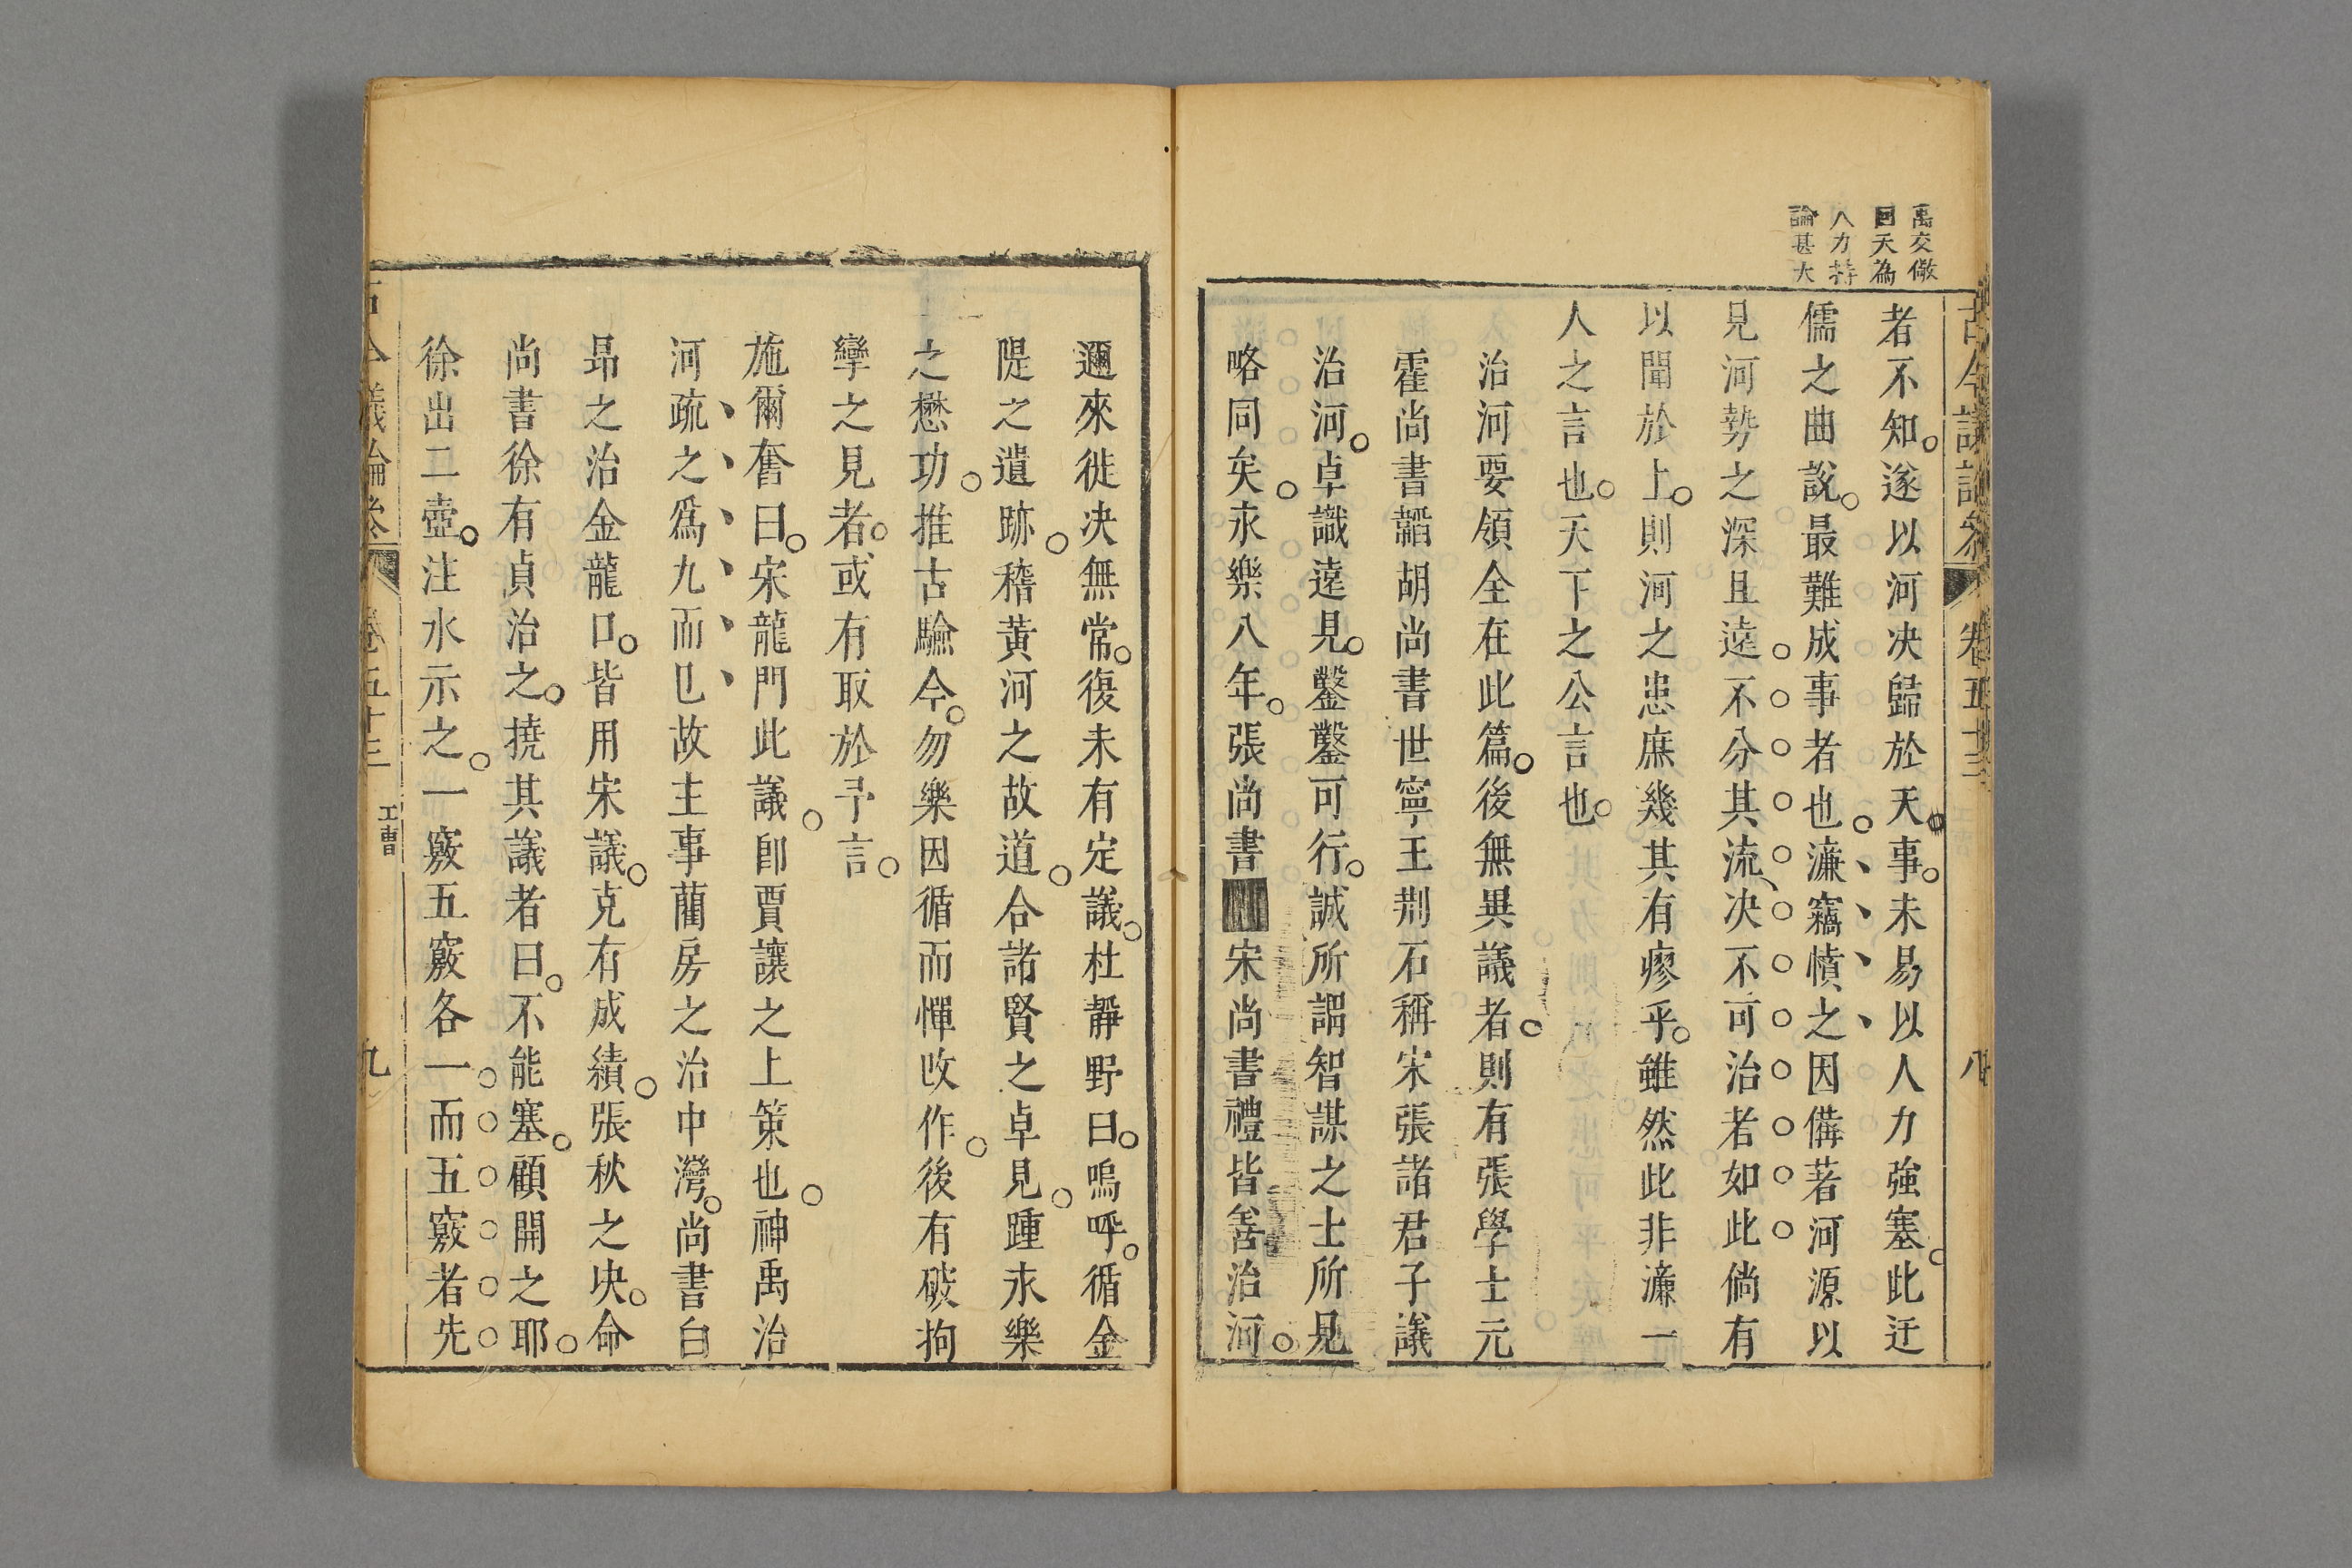 古今議論參
卷五十三
八
禹交儆
回天為
人力持
論甚大
者不知遂以河决歸於天事未易以人力強塞此迂
儒之曲說最難成事者也濂竊憤之因備著河源以
見河勢之深且遠不分其流决不可治者如此倘有
以聞於上則河之患庶幾其有瘳乎雖然此非濂一
人之言也天下之公言也
治河要領全在此篇後無異議者則有張學士元
霍尚書韜胡尚書世寧王荆石稱宋張諸君子議
治河卓識遠見鑿鑿可行誠所謂智謀之士所見
略同矣永樂八年張尚書 宋尚書禮皆善治河
邇來徙决無常復未有定議杜靜野曰嗚呼循金
隄之遺跡稽黃河之故道合諸賢之卓見踵永樂
之懋功推古驗今勿樂因循而憚改作後有破拘
攣之見者或有取於予言
施爾奮曰宋龍門此議卽賈讓之上策也神禹治
河疏之爲九而已故主事藺房之治中灣尚書白
昂之治金龍口皆用宋議克有成績張秋之决命
尚書徐有貞治之撓其議者曰不能塞顧開之耶
徐出二壺注水示之一竅五竅各一而五竅者先
古今議論參
卷五十三
工曹
九